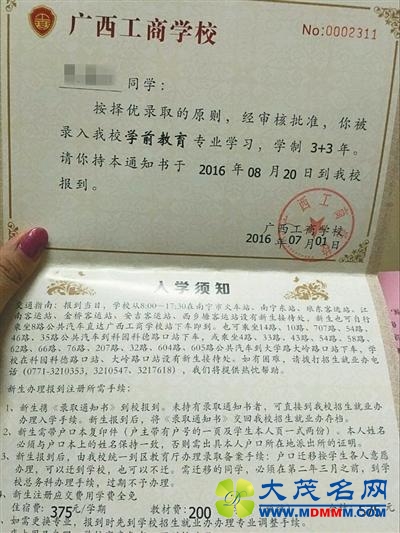 广西工商学校
No:0002311
同学：
按择优录取的原则，经审核批准，你被
录入我校学前教育专业学习，学制 3+3 年。
请你持本通知书于 2016 年 08 月 20 日到我校
报到。
广西工商学校
2016 年 07 月 01 日
入学须知
交通指南：报到当日，学校从8:00－17:30在南宁市火车站、南宁东站、琅东客运站、江
南客运站、金桥客运站、安吉客运站、西乡塘客运站设有新生接待处。新生也可自行
乘坐8路公共汽车直达广西工商学校站下车即到。也可乘坐14路、10路、707路、54路、
46路、35路公共汽车到科园科德路口站下车，或乘坐4路、33路、43路、54路、58路、
62路、66路、76路、207路、32路、604路、605路公共汽车到大学路大岭路口站下车，学
校在科园科德路口站、大岭路口站设有新生接待处。如有困难，请拨打招生就业办电
话（0771-3210353，3210547、3217618），我们将提供热忱帮助。
新生办理报到注册所需手续：
1、新生携《录取通知书》到校报到。未持有录取通知书者，可直接到我校招生就业办
办理入学手续。新生报到后，将《录取通知书》交回我校招生就业办存档。
2、新生需带户口本复印件（户主带有户号的一页及学生本人页一式两份），本人姓名
必须与户口本上的姓名保持一致，否则需出具本人户口所在地派出所的证明。
3、新生报到后，由我校统一到区教育厅办理录取备案手续；户口迁移按学生各人意愿
办理，可以迁到学校，也可以不迁。需迁移的同学，必须在第二年三月之前，到学
校总务科办理手续，过期不予办理。
4、新生注册应交费用学费全免
住宿费：375 元/学期 教材费：200
如需更换专业，报到时先到学校招生就业办办理专业调整手续。
大茂名网
WWW.MDMMM.COM